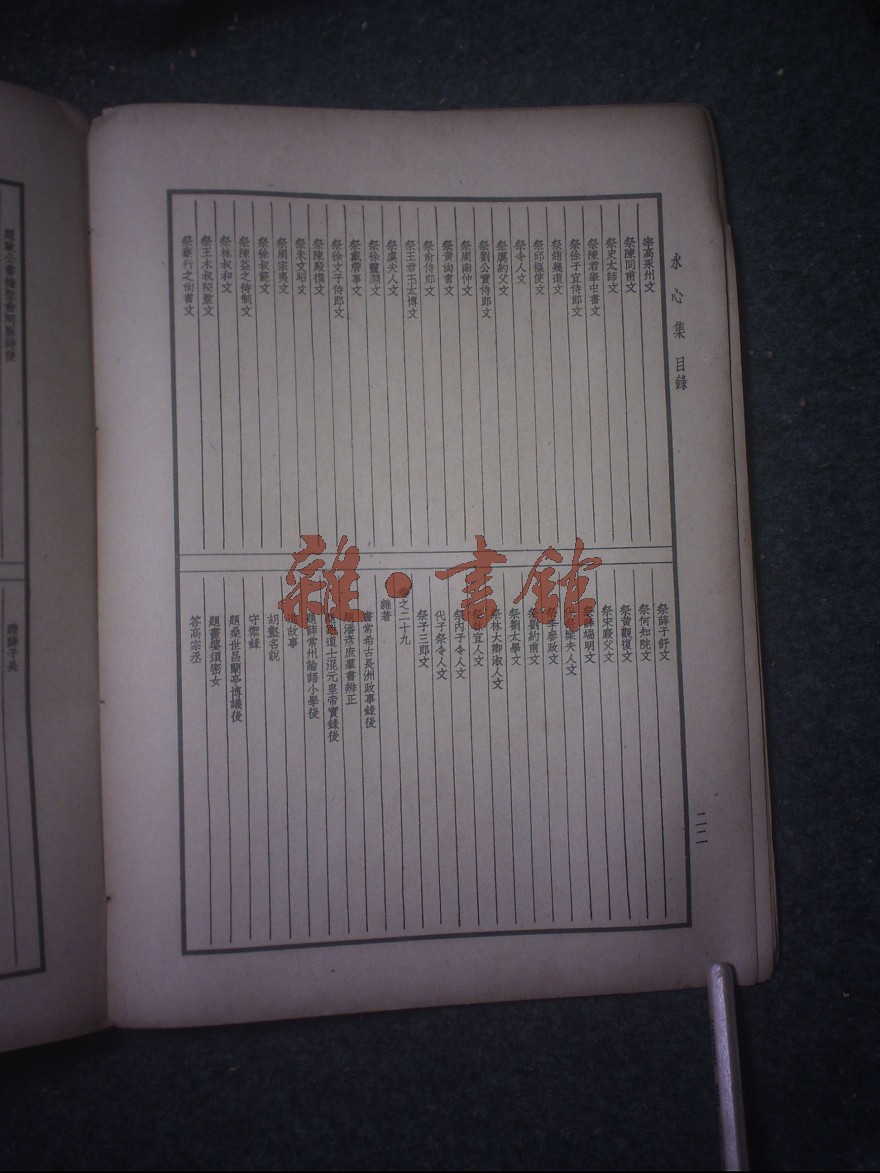 水心集 目錄
二二
祭高永州文
祭陳同甫文
祭史太師文
祭陳君舉中書文
祭徐子宜侍郎文
祭趙幾道文
祭邱樞使文
祭令人文
祭厲約父文
祭劉公實侍郎文
祭周南仲文
祭黃尙書文
祭俞侍郎文
祭王君玉太博文
祭虞夫人文
祭徐靈淵文
祭戴詹事文
祭徐文子侍郎文
祭陳殿撰文
祭朱文昭文
祭周宗夷文
祭徐叔範文
祭陳益之待制文
祭林叔和文
祭王木叔祕監文
祭蔡行之尙書文
祭薛子舒文
祭何知院文
祭黃觀復文
祭宋廏父文
端明文
夫人文
參政文
約甫文
祭劉太學文
祭林大卿淑人文
宜人文
祭內子令人文
代子祭令人文
祭子三郎文
之二十九
雜著
書常希古長洲政事錄後
潘彥庶羣書辨正
道士混元皇帝實錄後
題薛常州論語小學後
故事
胡壑名說
守雲錄
題桑世昌蘭亭博議後
題畫婆須密女
答高宗丞
題薛子長
雜·書館